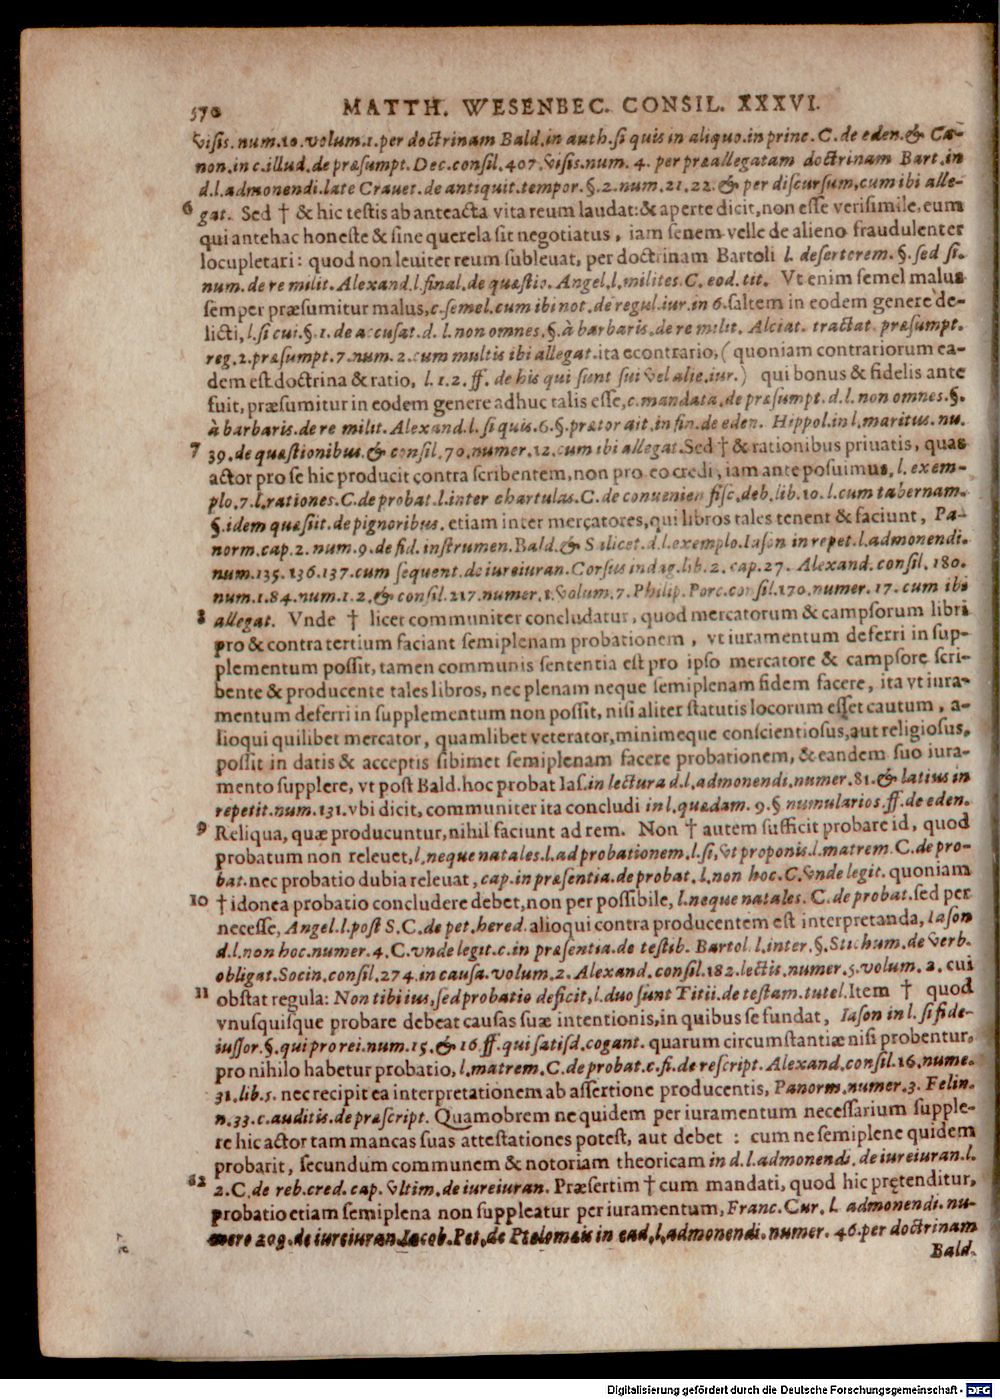 570 MATTH. WESENBEC. CONSIL. XXXVI.
visis.num.10.volum.1.per doctrinam Bald.in auth.si quis in aliquo.in princ.C.de eden.& Ca-
non.in c.illud.de præsumpt.Dec.consil.407.visis.num. 4. per præallegatam doctrinam Bart.in
d.l.admonendi.late Crauet.de antiquit.tempor.§.2.num.21.22.& per discursum,cum ibi alle-
6 gat. Sed † & hic testis ab anteacta vita reum laudat:& aperte dicit,non esse verisimile,eum
qui antehac honeste & sine querela sit negotiatus, iam senem velle de alieno fraudulenter
locupletari: quod non leuiter reum subleuat, per doctrinam Bartoli l. desertorem. §. sed si.
num. de re milit. Alexand.l.final.de quæstio. Angel.l.milites.C. eod.tit. Vt enim semel malus
semper præsumitur malus,c.semel.cum ibi not.de regul.iur.in 6.saltem in eodem genere de-
licti,l.si cui.§.1.de accusat.d. l.non omnes.§.à barbaris.de re milit. Alciat. tractat.præsumpt.
reg.2.præsumpt.7.num.2.cum multis ibi allegat.ita econtrario,(quoniam contrariorum ea-
dem est doctrina & ratio, l.1.2. ff. de his qui sunt sui vel alie.iur.) qui bonus & fidelis ante
fuit, præsumitur in eodem genere adhuc talis esse,c.mandata.de præsumpt.d.l.non omnes.§.
à barbaris.de re milit.Alexand.l.si quis.6.§.prætor ait.in fin.de eden. Hippol.in l.maritus.nu.
7 39.de quæstionibus.& consil.70.numer.12.cum ibi allegat.Sed † & rationibus priuatis, quas
actor pro se hic producit contra scribentem,non pro eo credi, iam ante posuimus, l. exem-
plo.7.l.rationes.C.de probat.l.inter chartulas.C.de conuenien fisc.deb.lib.10. l.cum tabernam.
§.idem quæsiit.de pignoribus. etiam inter mercatores,qui libros tales tenent & faciunt, Pa-
norm.cap.2. num.9.de fid. instrumen.Bald.& Salicet.d.l.exemplo.Iason in repet.l.admonendi.
num.135.136.137.cum sequent.de iureiuran.Corsus indag.lib.2. cap.27. Alexand. consil. 180.
num.1.84.num.1.2.& consil.217.numer.1.volum.7. Philip. Porc.consil.170.numer. 17.cum ibi
8 allegat. Vnde † licet communiter concludatur, quod mercatorum & campsorum libri
pro & contra tertium faciant semiplenam probationem, vt iuramentum deferri in sup-
plementum possit, tamen communis sententia est pro ipso mercatore & campsore scri-
bente & producente tales libros, nec plenam neque semiplenam fidem facere, ita vt iura-
mentum deferri in supplementum non possit, nisi aliter statutis locorum esset cautum, a-
lioqui quilibet mercator, quamlibet veterator,minimeque conscientiosus,aut religiosus,
possit in datis & acceptis sibimet semiplenam facere probationem, & eandem suo iura-
mento supplere, vt post Bald.hoc probat Ias.in lectura d.l.admonendi.numer.81.& latius in
repetit.num.131.vbi dicit, communiter ita concludi in l.quædam. 9.§ numularios.ff.de eden.
9 Reliqua, quæ producuntur,nihil faciunt ad rem. Non † autem sufficit probare id, quod
probatum non releuet,l.neque natales.l.ad probationem.l.si,vt proponis.l.matrem.C.de pro-
bat.nec probatio dubia releuat, cap.in præsentia.de probat.l.non hoc.C.vnde legit. quoniam
10 † idonea probatio concludere debet,non per possibile, l.neque natales. C.de probat.sed per
necesse, Angel.l.post S.C.de pet.hered.alioqui contra producentem est interpretanda, Iason
d.l.non hoc.numer.4.C.vnde legit.c.in præsentia.de testib. Bartol.l.inter.§.Stichum.de verb.
obligat.Socin.consil.274.in causa.volum.2. Alexand.consil.182.lectis.numer.5.volum. 2. cui
11 obstat regula: Non tibi ius,sed probatio deficit,l.duo sunt Titii.de testam.tutel.Item † quod
vnusquisque probare debeat causas suæ intentionis,in quibus se fundat, Iason in l. si fide-
iussor.§.qui pro rei.num.15.& 16.ff.qui satisd.cogant. quarum circumstantiæ nisi probentur,
pro nihilo habetur probatio, l.matrem.C.de probat.c.fi.de rescript.Alexand.consil.16.nume.
31.lib.5. nec recipit ea interpretationem ab assertione producentis, Panorm.numer.3. Felin.
n.33.c.auditis.de præscript. Quamobrem ne quidem per iuramentum necessarium supple-
re hic actor tam mancas suas attestationes potest, aut debet : cum ne semiplene quidem
probarit, secundum communem & notoriam theoricam in d.l.admonendi.de iureiuran.l.
12 2.C.de reb.cred.cap.vltim.de iureiuran. Præsertim † cum mandati, quod hic prętenditur,
probatio etiam semiplena non suppleatur per iuramentum, Franc.Cur. l. admonendi.nu-
mero 209.de iureiuran.Iacob.Pet.de Ptolomæis in ead.l.admonendi.numer. 46.per doctrinam
Bald.
Digitalisierung gefördert durch die Deutsche Forschungsgemeinschaft - DFG